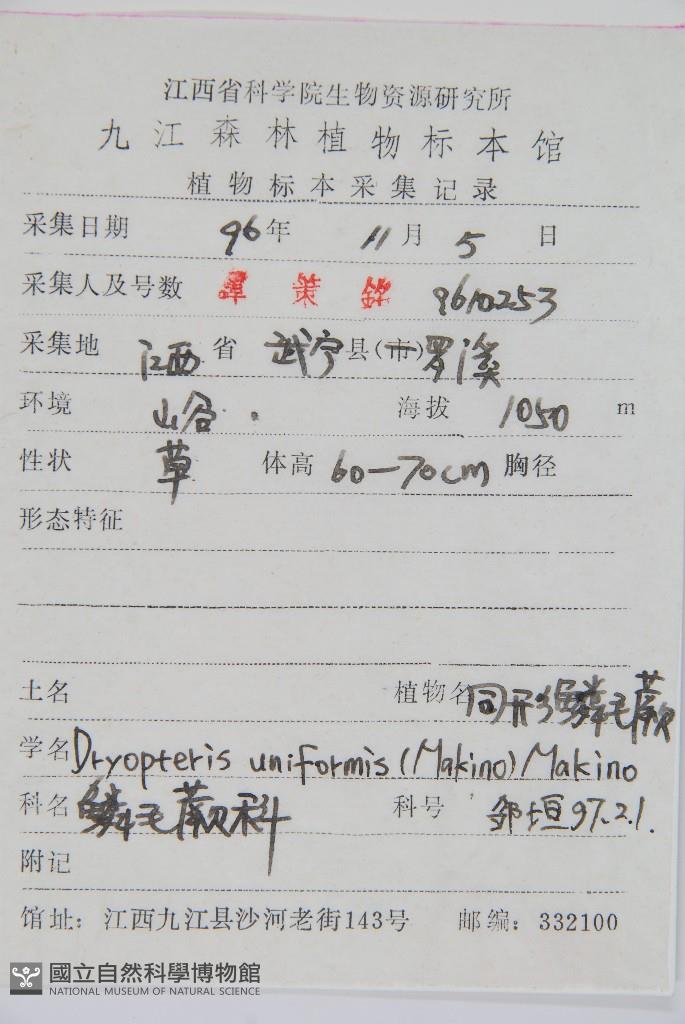 江西省科学院生物资源研究所
九江森林植物标本馆
植物标本采集记录
采集日期 96年 11月 5 日
采集人及号数 譚策銘 9610253
采集地 江西省 武宁县(市)罗溪
环境 山谷. 海拔 1050 m
性状 草 体高 60—70cm 胸径
形态特征
土名 植物名 同形鳞毛蕨
学名 Dryopteris uniformis (Makino) Makino
科名 鳞毛蕨科 科号 邹垣 97.2.1.
附记
馆址：江西九江县沙河老街143号 邮编：332100
國立自然科學博物館
NATIONAL MUSEUM OF NATURAL SCIENCE